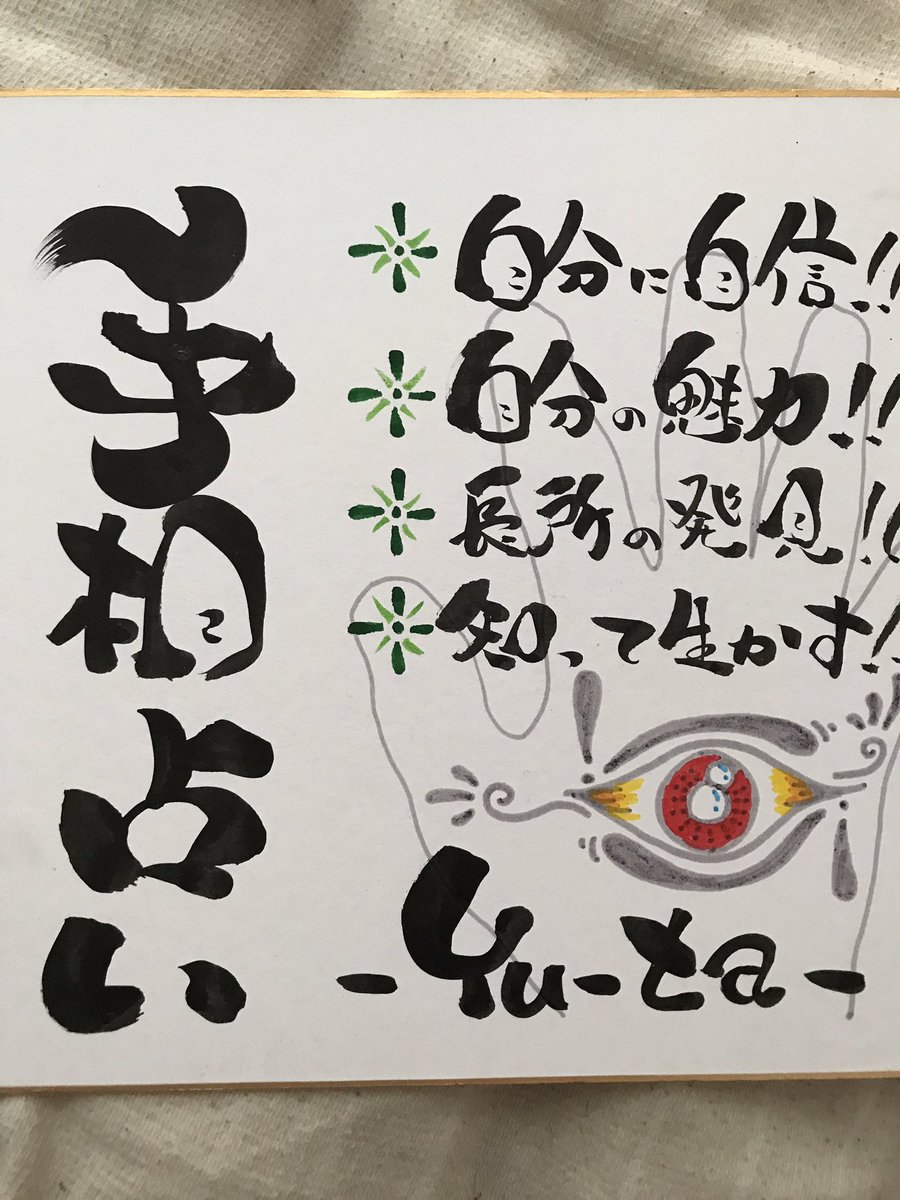 手相占い
自分に自信!!
自分の魅力!!
長所の発見!!
知って生かす!!
-Yu-ta-